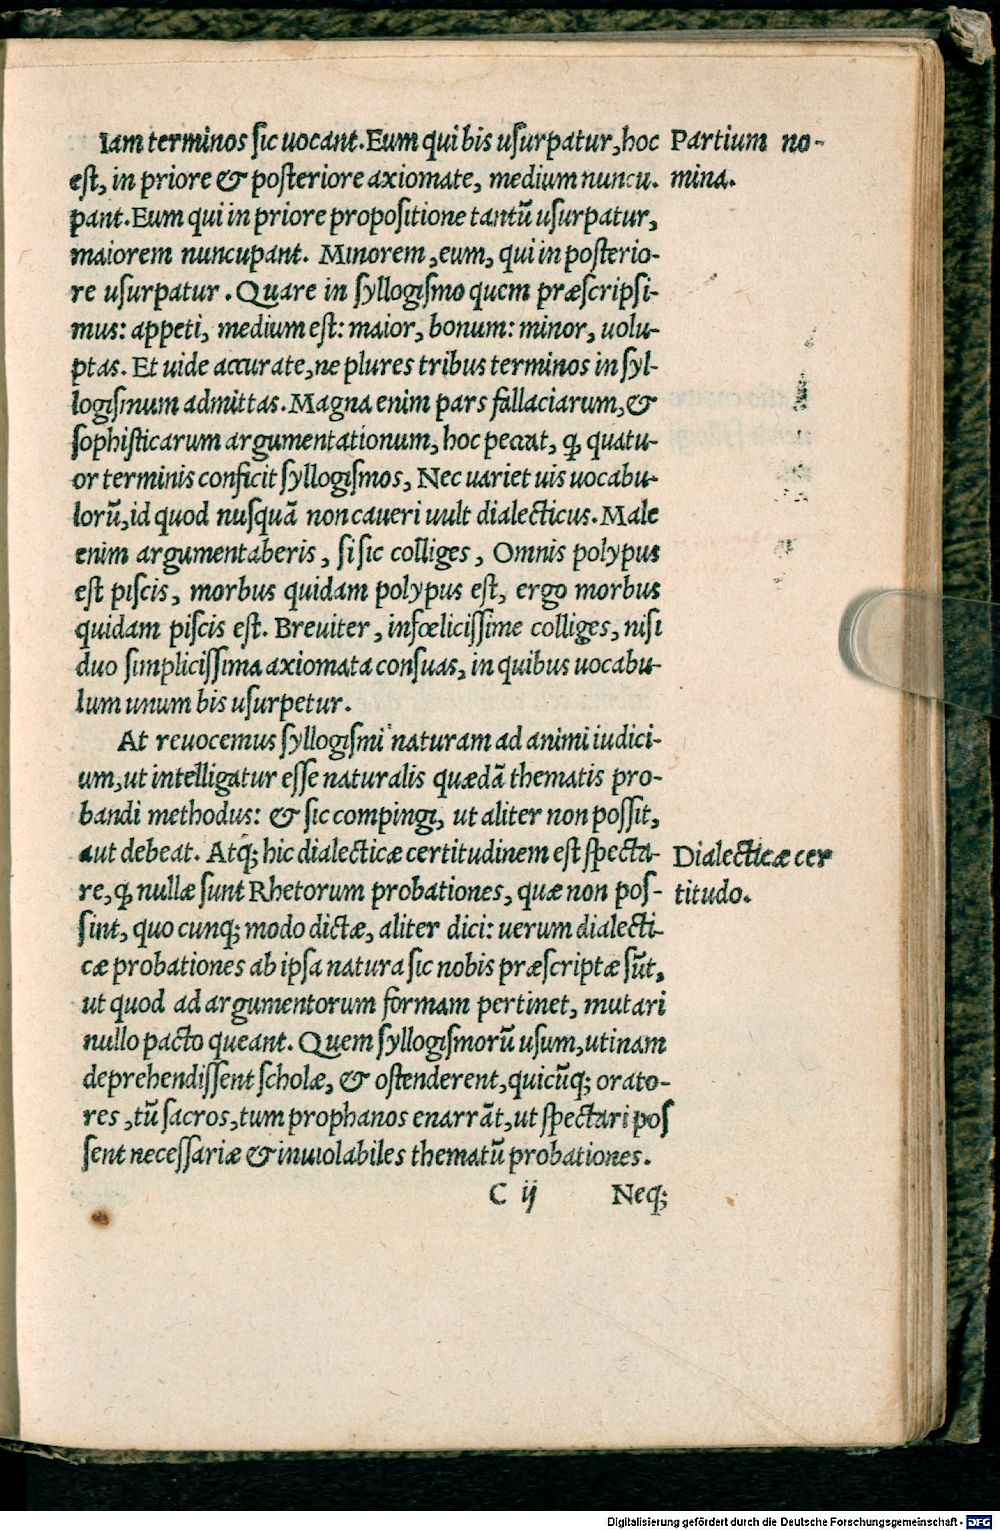 Iam terminos ſic uocant. Eum qui bis uſurpatur, hoc
Partium no-
eſt, in priore & poſteriore axiomate, medium nuncu.
mina.
pant. Eum qui in priore propoſitione tantũ uſurpatur,
maiorem nuncupant. Minorem, eum, qui in poſterio-
re uſurpatur. Quare in ſyllogiſmo quem præſcripſi-
mus: appeti, medium eſt: maior, bonum: minor, uolu-
ptas. Et uide accurate, ne plures tribus terminos in ſyl-
logiſmum admittas. Magna enim pars fallaciarum, &
ſophiſticarum argumentationum, hoc peccat, ꝙ quatu-
or terminis conficit ſyllogiſmos, Nec uariet uis uocabu-
lorũ, id quod nuſquã non caueri uult dialecticus. Male
enim argumentaberis, ſi ſic colliges, Omnis polypus
eſt piſcis, morbus quidam polypus eſt, ergo morbus
quidam piſcis eſt. Breuiter, infœliciſſime colliges, niſi
duo ſimpliciſſima axiomata conſuas, in quibus uocabu-
lum unum bis uſurpetur.
At reuocemus ſyllogiſmi naturam ad animi iudici-
um, ut intelligatur eſſe naturalis quædã thematis pro-
bandi methodus: & ſic compingi, ut aliter non poſſit,
aut debeat. Atq; hic dialecticæ certitudinem eſt ſpecta-
Dialecticæ cer
re, ꝙ nullæ ſunt Rhetorum probationes, quæ non poſ-
titudo.
ſint, quo cunq; modo dictæ, aliter dici: uerum dialecti-
cæ probationes ab ipſa natura ſic nobis præſcriptæ ſũt,
ut quod ad argumentorum formam pertinet, mutari
nullo pacto queant. Quem ſyllogiſmorũ uſum, utinam
deprehendiſſent ſcholæ, & oſtenderent, quicũq; orato-
res, tũ ſacros, tum prophanos enarrãt, ut ſpectari poſ
ſent neceſſariæ & inuiolabiles thematũ probationes.
C ij
Neq;
Digitalisierung gefördert durch die Deutsche Forschungsgemeinschaft - DFG